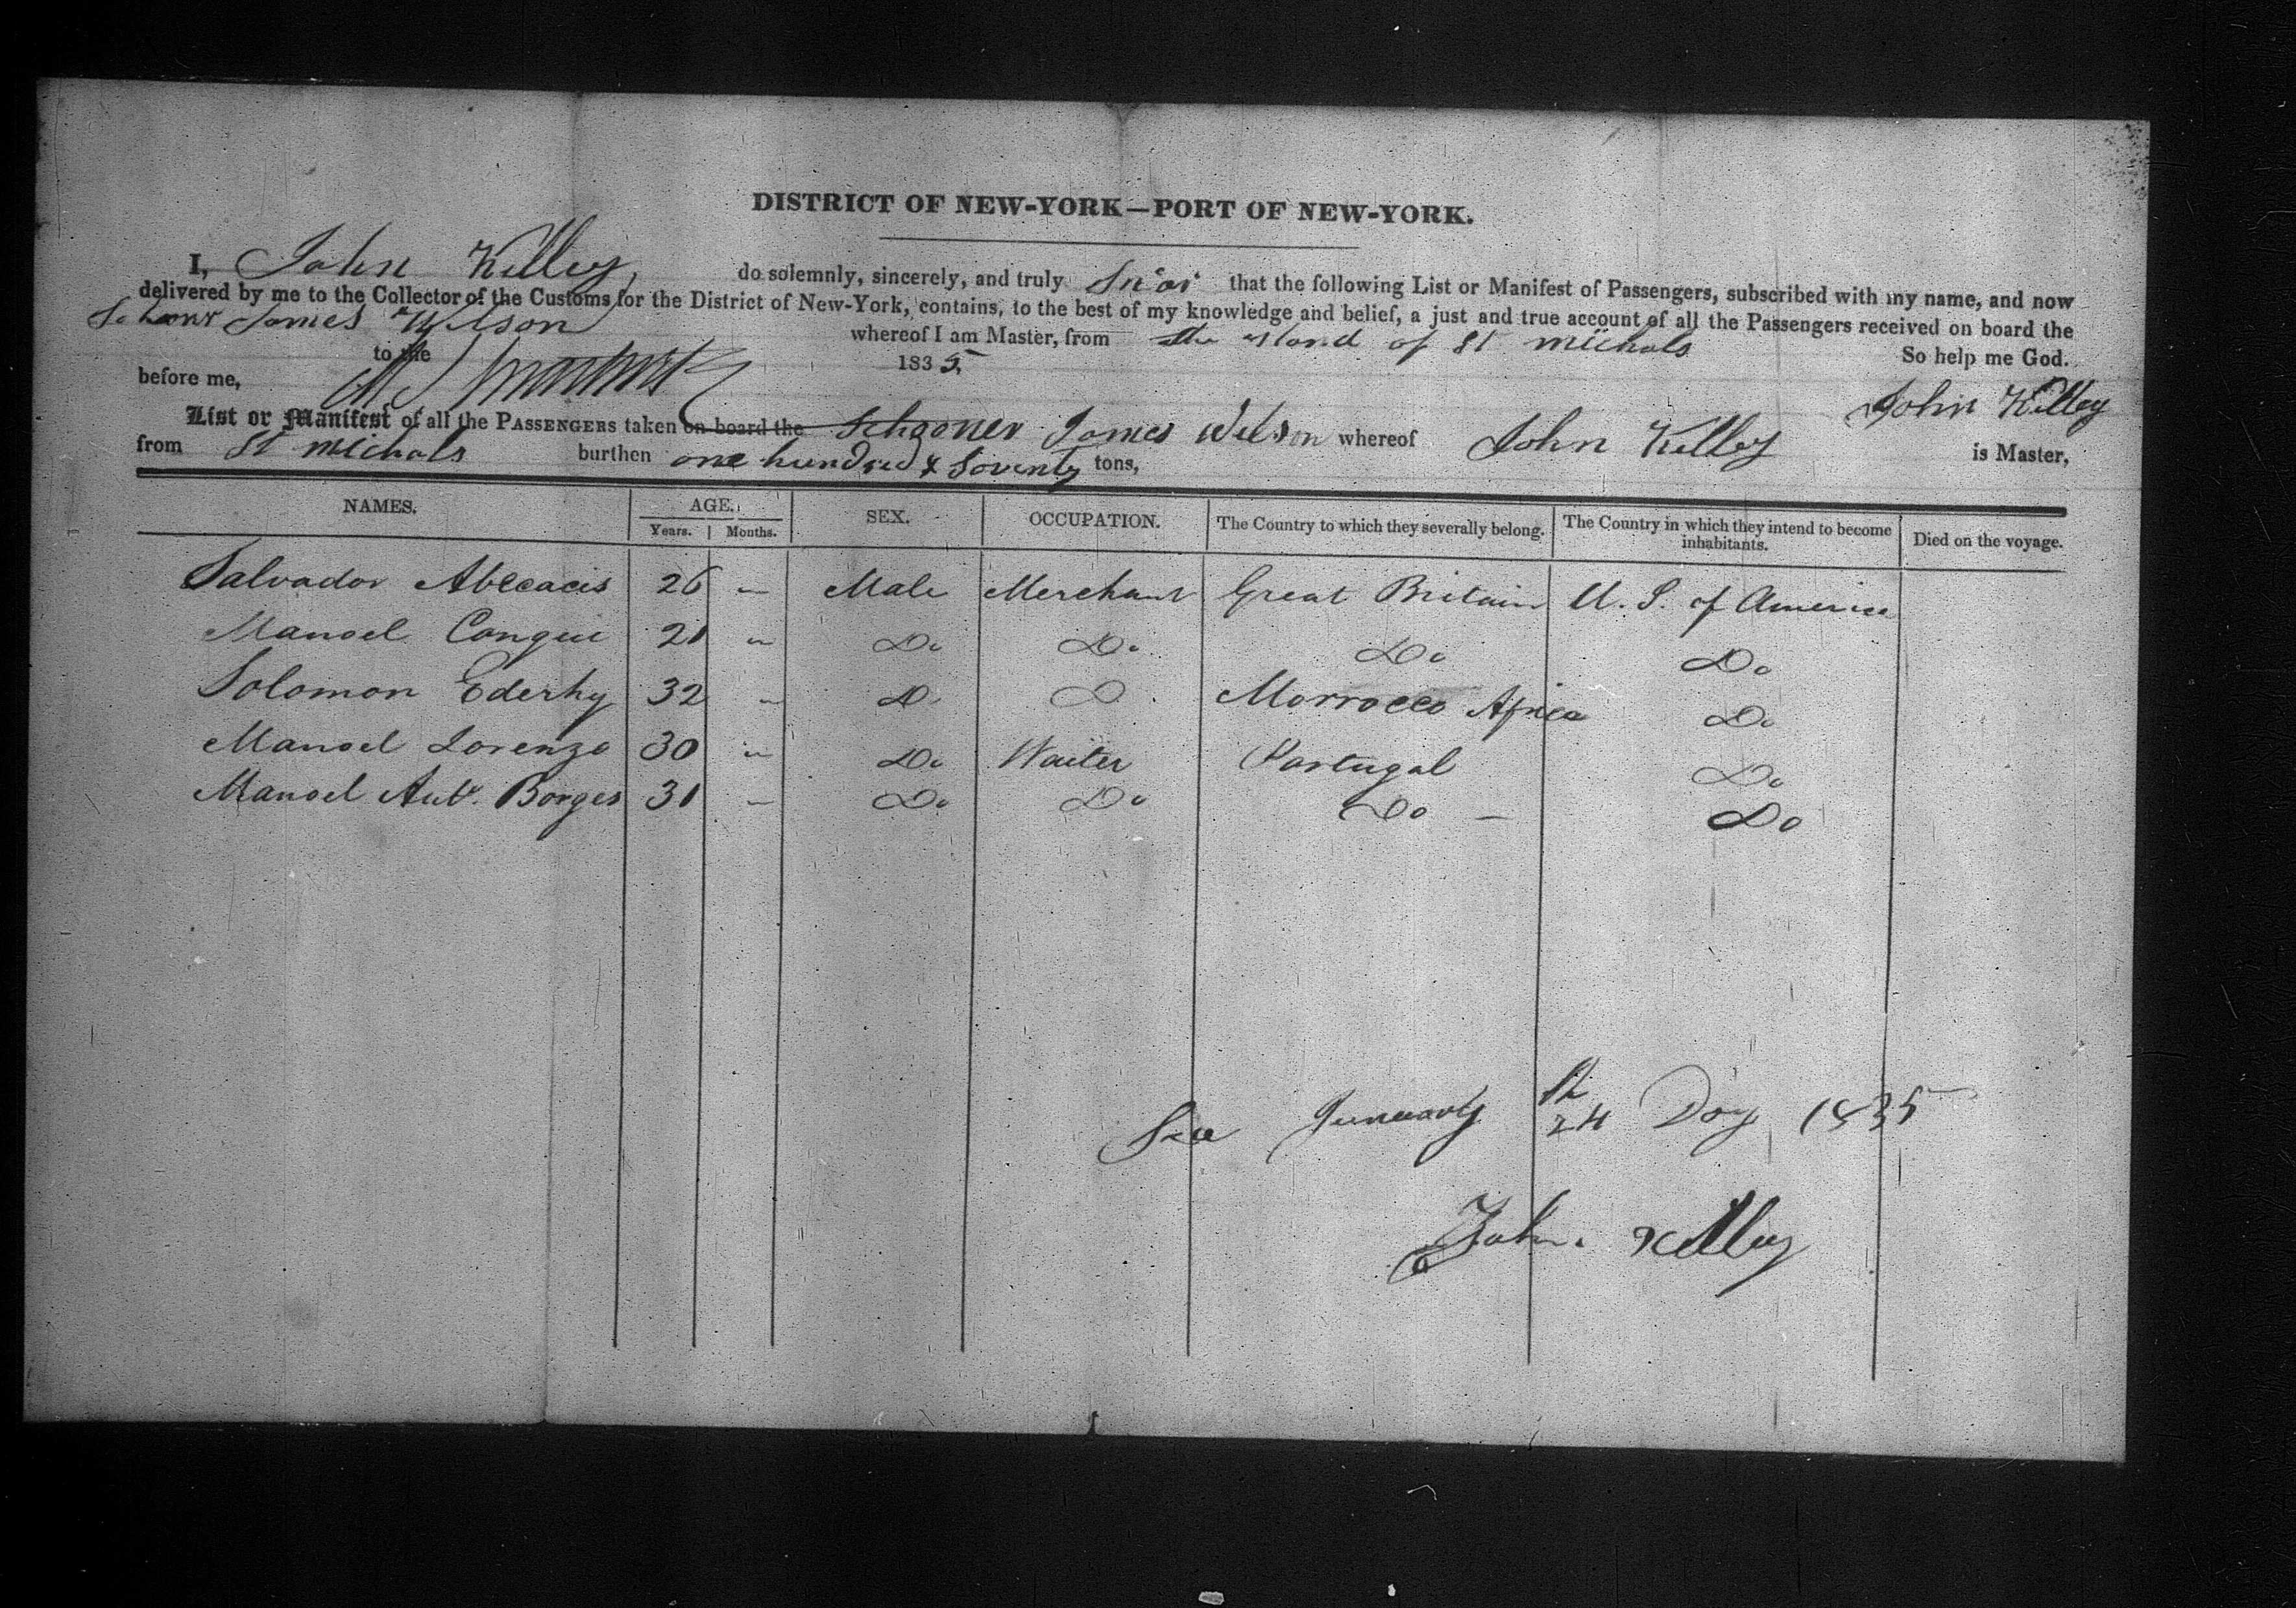 DISTRICT OF NEW-YORK—PORT OF NEW-YORK.
I, John Killey, do solemnly, sincerely, and truly that the following List or Manifest of Passengers, subscribed with my name, and now
delivered by me to the Collector of the Customs for the District of New-York, contains, to the best of my knowledge and belief, a just and true account of all the Passengers received on board the
James Wilson whereof I am Master, from the island of St michals
to the 1835, So help me God.
before me, John Killey
List or Manifest of all the PASSENGERS taken on board the Schooner James Wilson whereof John Killey is Master,
from St michals burthen one hundred & Soventy tons,
NAMES. AGE. SEX. OCCUPATION. The Country to which they severally belong. The Country in which they intend to become inhabitants. Died on the voyage.
Years. Months.
Salvador Abecacis 26 — Male Merchant Great Britain U. S. of America
Manoel Conquie 21 — Do Do Do Do
Solomon Ederhy 32 — D D Morrocco Africa Do
Manoel Lorenzo 30 — Do Waiter Portugal Do
Manoel Anto. Borges 31 — Do Do Do — Do
24 Day 1835
John Killey